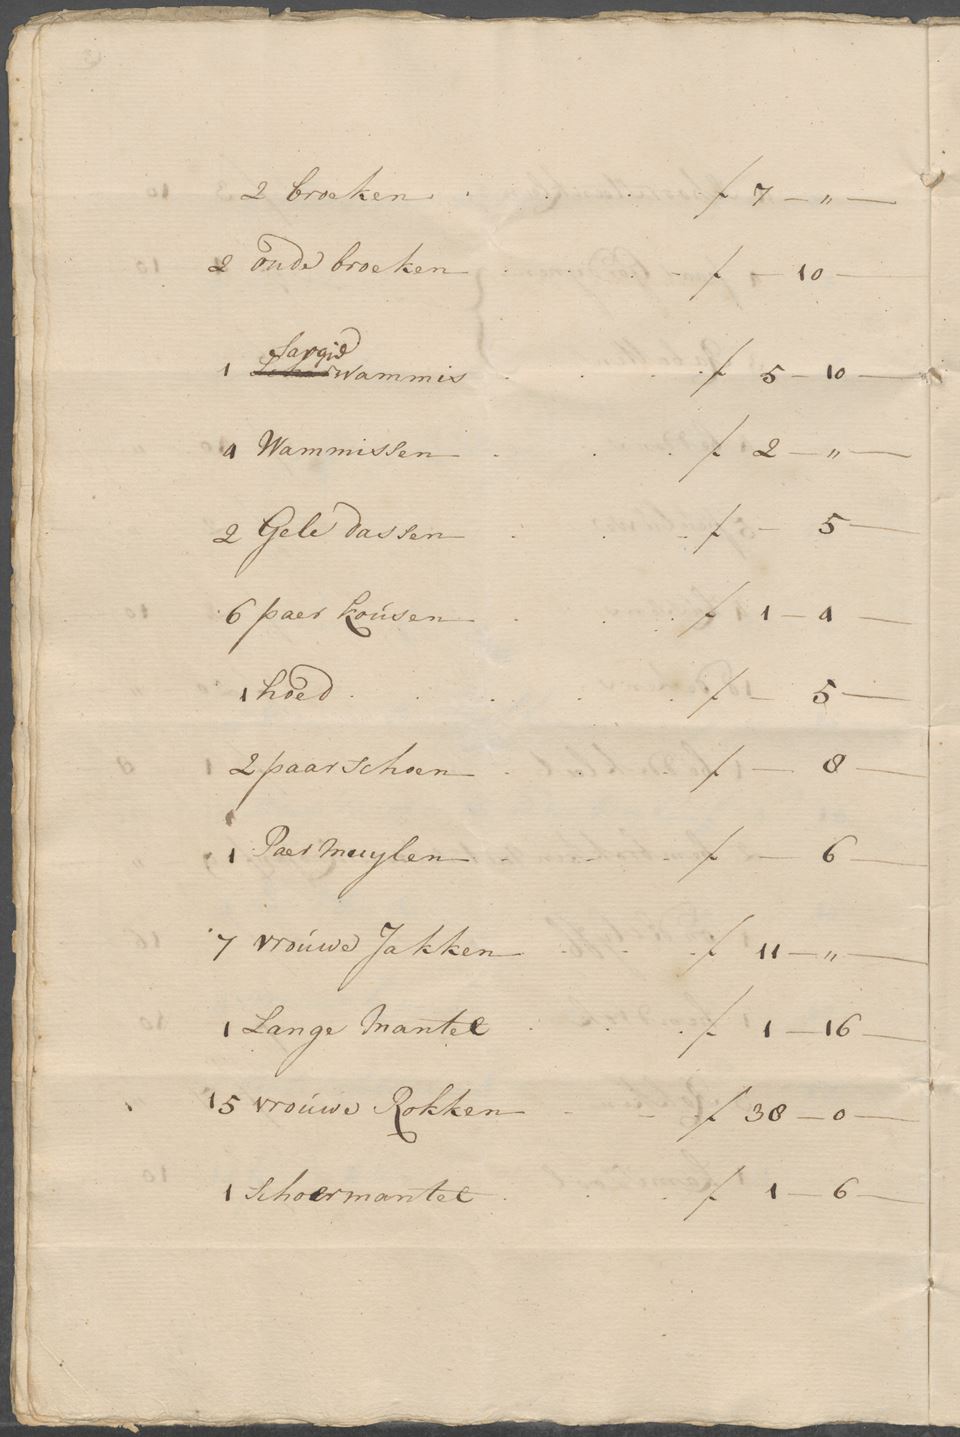 2 broeken . . . ƒ 7 — „ —
2 oude broeken . . . - ƒ — 10 —
Sargie
1 wammis . . . . ƒ 5 — 10 —
4 Wammissen . . . ƒ 2 — „ —
2 Gele dassen . . - ƒ — 5 —
6 paer kousen . . . ƒ 1 — 4 —
1 hoed . . . . . ƒ — 5 —
2 paar schoen . . . ƒ — 8 —
1 Paer Muylen - - - ƒ — 6 —
7 vrouwe Jakken . . . ƒ 11 — „ —
1 Lange Mantel . . . ƒ 1 — 16 —
15 vrouwe Rokken - - ƒ 38 — 0 —
1 Schoermantel . . . ƒ 1 — 6 —